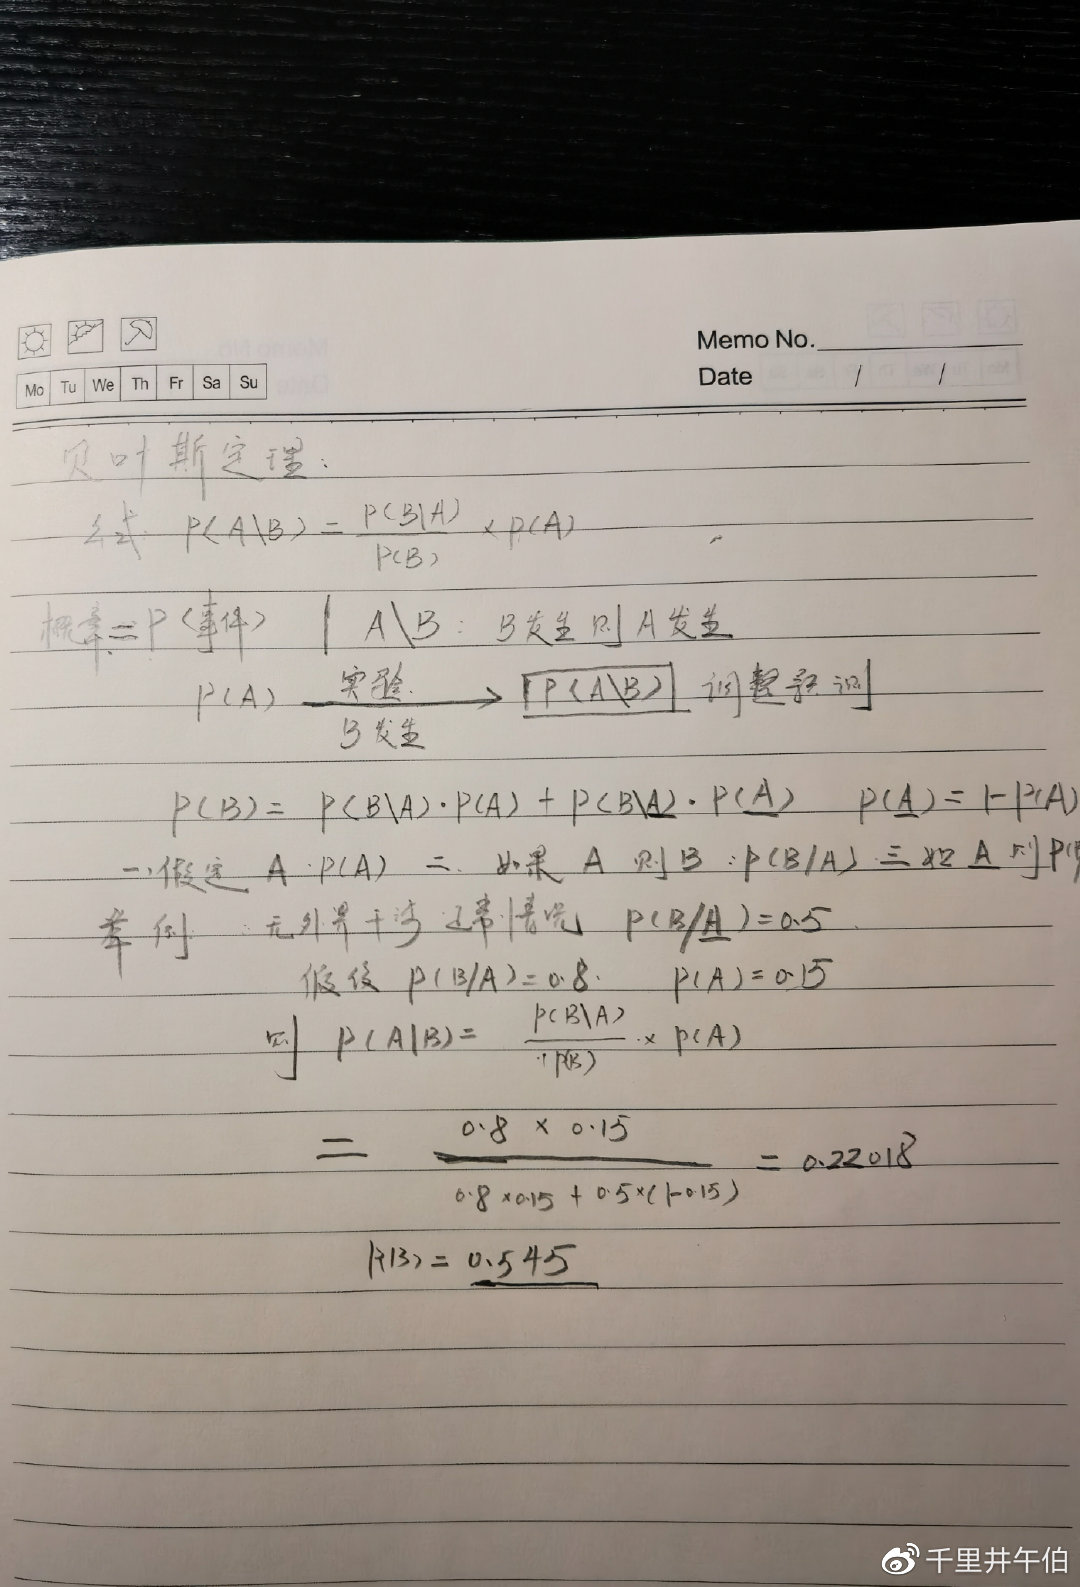 Memo No.
Mo Tu We Th Fr Sa Su
Date / /
贝叶斯定理:
公式: P(A\B) = P(B\A) / P(B) × P(A)
概率 = P(事件) | A\B: B发生则A发生
P(A) 实验 B发生 → P(A\B) 调整认识
P(B) = P(B\A)·P(A) + P(B\A̲)·P(A̲) P(A̲) = 1-P(A)
一.假定 A P(A) 二. 如果 A 则 B: P(B/A) 三如 A̲ 则 P(
举例: 无外界干涉 正常情况 P(B/A̲) = 0.5
假设 P(B/A) = 0.8. P(A) = 0.15
则 P(A|B) = P(B\A) / P(B) × P(A)
= 0.8 × 0.15 / 0.8×0.15 + 0.5×(1-0.15) = 0.22018
P(B) = 0.545
千里井午伯